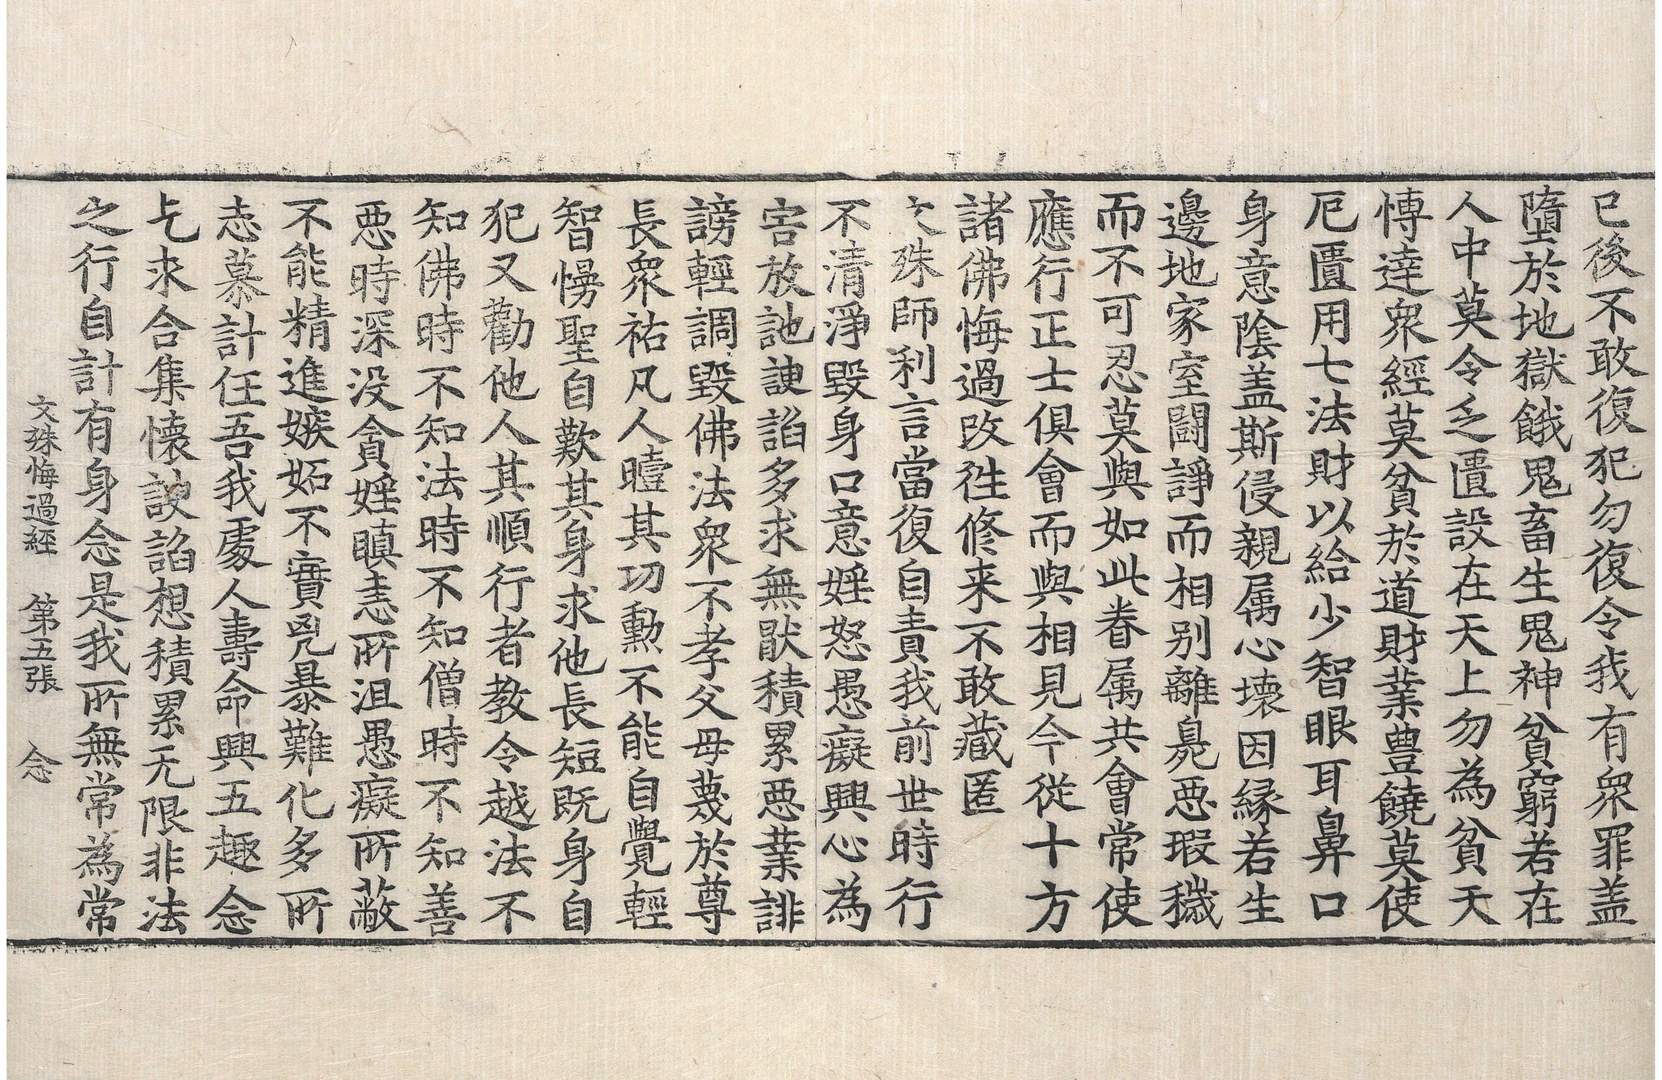 已後不敢復犯勿復令我有衆罪盖
墮於地獄餓鬼畜生鬼神貧窮若在
人中莫令乏匱設在天上勿為貧天
博達衆經莫貧於道財業豊饒莫使
厄匱用七法財以給少智眼耳鼻口
身意陰盖斯侵親属心壞因縁若生
邊地家室闘諍而相别離臰惡瑕穢
而不可忍莫與如此眷属共會常使
應行正士俱會而與相見今從十方
諸佛悔過改徃修来不敢藏匿
文殊師利言當復自責我前世時行
不清淨毀身口意婬怒愚癡興心為
害放訑諛諂多求無猒積累惡業誹
謗輕調毀佛法衆不孝父母蔑於尊
長衆祐凡人曀其功勳不能自覺輕
智慢聖自歎其身求他長短既身自
犯又勸他人其順行者教令越法不
知佛時不知法時不知僧時不知善
惡時深没貪婬瞋恚所沮愚癡所蔽
不能精進嫉妬不實兇暴難化多所
志慕計任吾我處人壽命興五趣念
乞求合集懷諛諂想積累无限非法
之行自計有身念是我所無常為常
文殊悔過經　第五張　念